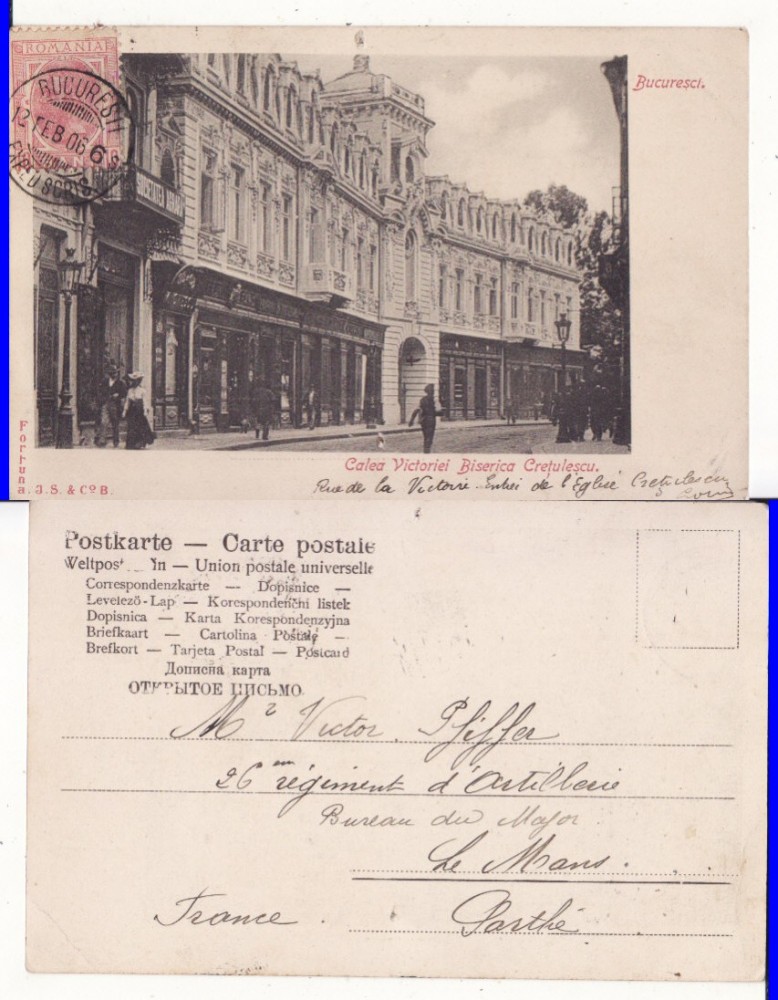 ROMANIA
BUCURESTI
12 FEB 06 6
Bucuresci.
Fortuna. J.S. & Co B.
Calea Victoriei Biserica Crețulescu.
Rue de la Victoire Entrée de l'Eglise Crețulescu
Louis
Postkarte — Carte postale
Weltpost n — Union postale universelle
Correspondenzkarte — Dopisnice —
Levelező-Lap — Korespondenčni listek
Dopisnica — Karta Korespondenzyjna
Briefkaart — Cartolina Postale —
Brefkort — Tarjeta Postal — Postcard
Дописна карта
ОТКРЫТОЕ ПИСЬМО.
Mr Victor Pfiffer
26 em régiment d'Artillerie
Bureau du Major
Le Mans.
France. Sarthe